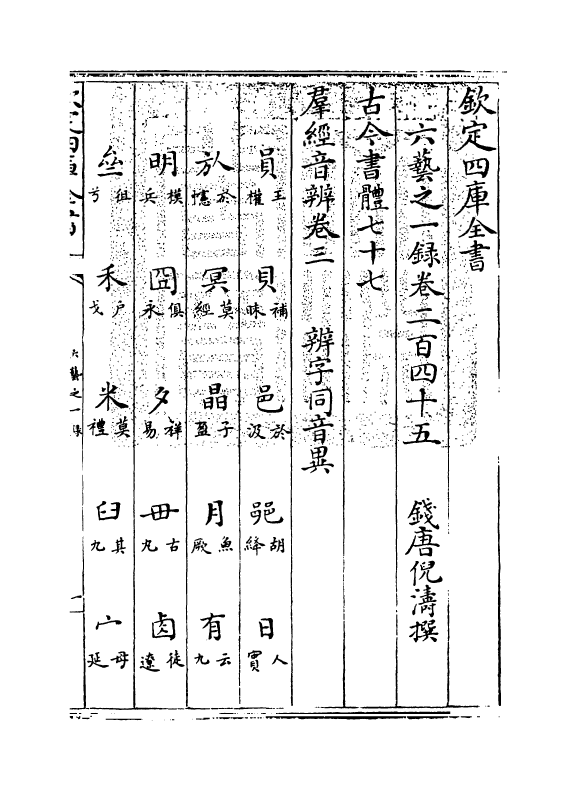 欽定四庫全書
六藝之一録卷二百四十五　錢唐倪濤撰
古今書體七十七
羣經音辨卷三　辨字同音異
員王權　貝補昧　邑於汲　𨛜胡絳　日人實
㫃於幰　冥莫經　晶子盈　月魚厥　有云九
明模兵　囧俱永　夕祥易　毌古丸　卤徒遼
亝徂兮　禾户戈　米莫禮　臼其九　宀毋延
六藝之一録